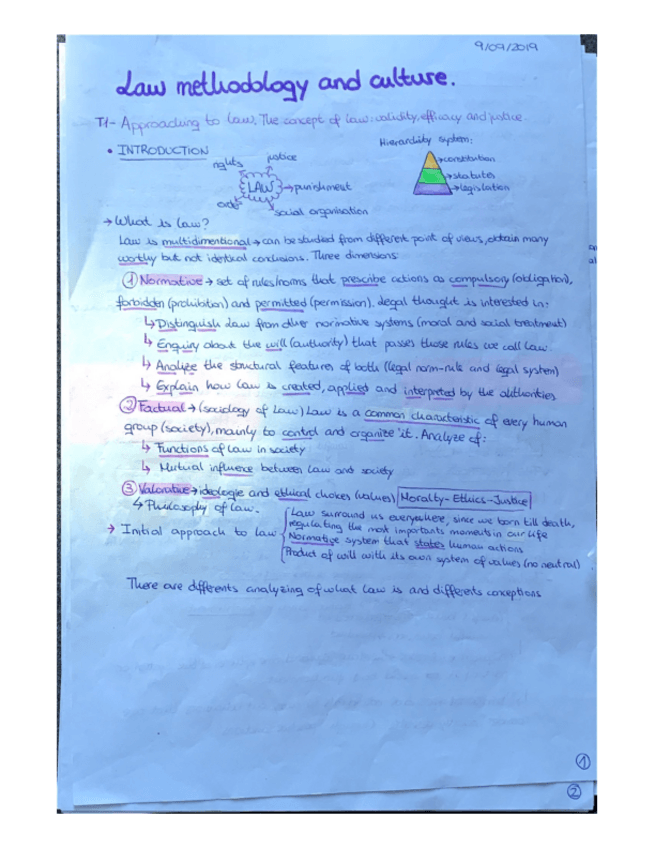 9/09/2019
Law methodology and culture.
T1- Approaching to Law. The concept of law: validity, efficacy and justice.
• INTRODUCTION
Hierarchity system:
rights
justice
LAW → punishment
order
social organisation
→ constitution
→ statutes
→ legislation
→ What is law?
Law is multidimentional → can be studied from different point of views, obtain many
worthy but not identical conclusions. Three dimensions:
① Normative → set of rules/norms that prescribe actions as compulsory (obligation),
forbidden (prohibition) and permitted (permission). Legal thought is interested in:
↳ Distinguish law from other normative systems (moral and social treatment)
↳ Enquiry about the will (authority) that passes those rules we call law.
↳ Analyze the structural features of both (legal norm-rule and legal system)
↳ Explain how law is created, applied and interpreted by the authorities
② Factual → (sociology of Law) Law is a common characteristic of every human
group (society), mainly to control and organize it. Analyze of:
↳ Functions of law in society
↳ Mutual influence between law and society
③ Valorative → ideologie and ethical choices (values) Moralty-Ethics-Justice
↳ Philosophy of law.
→ Initial approach to law
Law surround us everywhere, since we born till death,
regulating the most importants moments in our life
Normative system that states human actions
Product of will with its own system of values (no neutral)
There are differents analyzing of what law is and differents conceptions
①
②